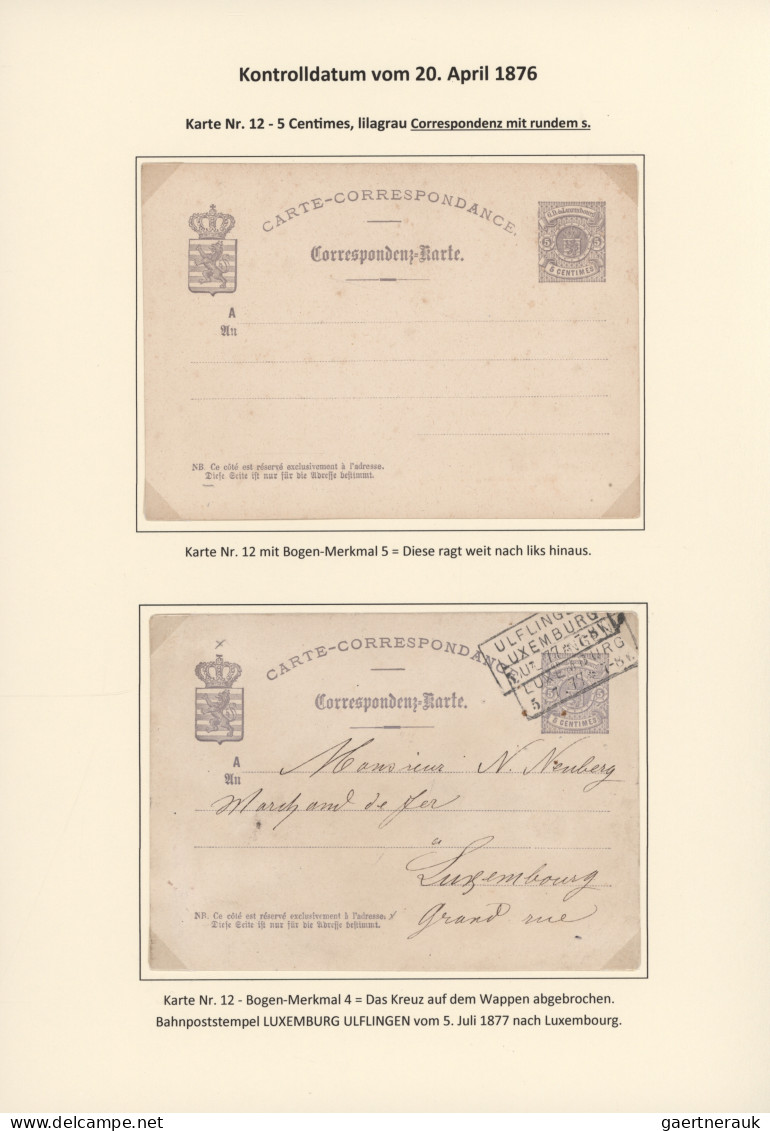 Kontrolldatum vom 20. April 1876
Karte Nr. 12 - 5 Centimes, lilagrau Correspondenz mit rundem s.
CARTE-CORRESPONDANCE.
Correspondenz=Karte.
5 5
5 CENTIMES
A
An
NB. Ce côté est réservé exclusivement à l'adresse.
Diese Seite ist nur für die Adresse bestimmt.
Karte Nr. 12 mit Bogen-Merkmal 5 = Diese ragt weit nach liks hinaus.
ULFLING
LUXEMBURG
LUXEMBURG
CARTE-CORRESPONDANC
Correspondenz=Karte.
5 CENTIMES
A
An
Monsieur N. Neuberg
Marchand de fer
à
Luxembourg
Grand rue
NB. Ce côté est réservé exclusivement à l'adresse.
Diese Seite ist nur für die Adresse bestimmt.
Karte Nr. 12 - Bogen-Merkmal 4 = Das Kreuz auf dem Wappen abgebrochen.
Bahnpoststempel LUXEMBURG ULFLINGEN vom 5. Juli 1877 nach Luxembourg.
www.delcampe.net
gaertnerauk